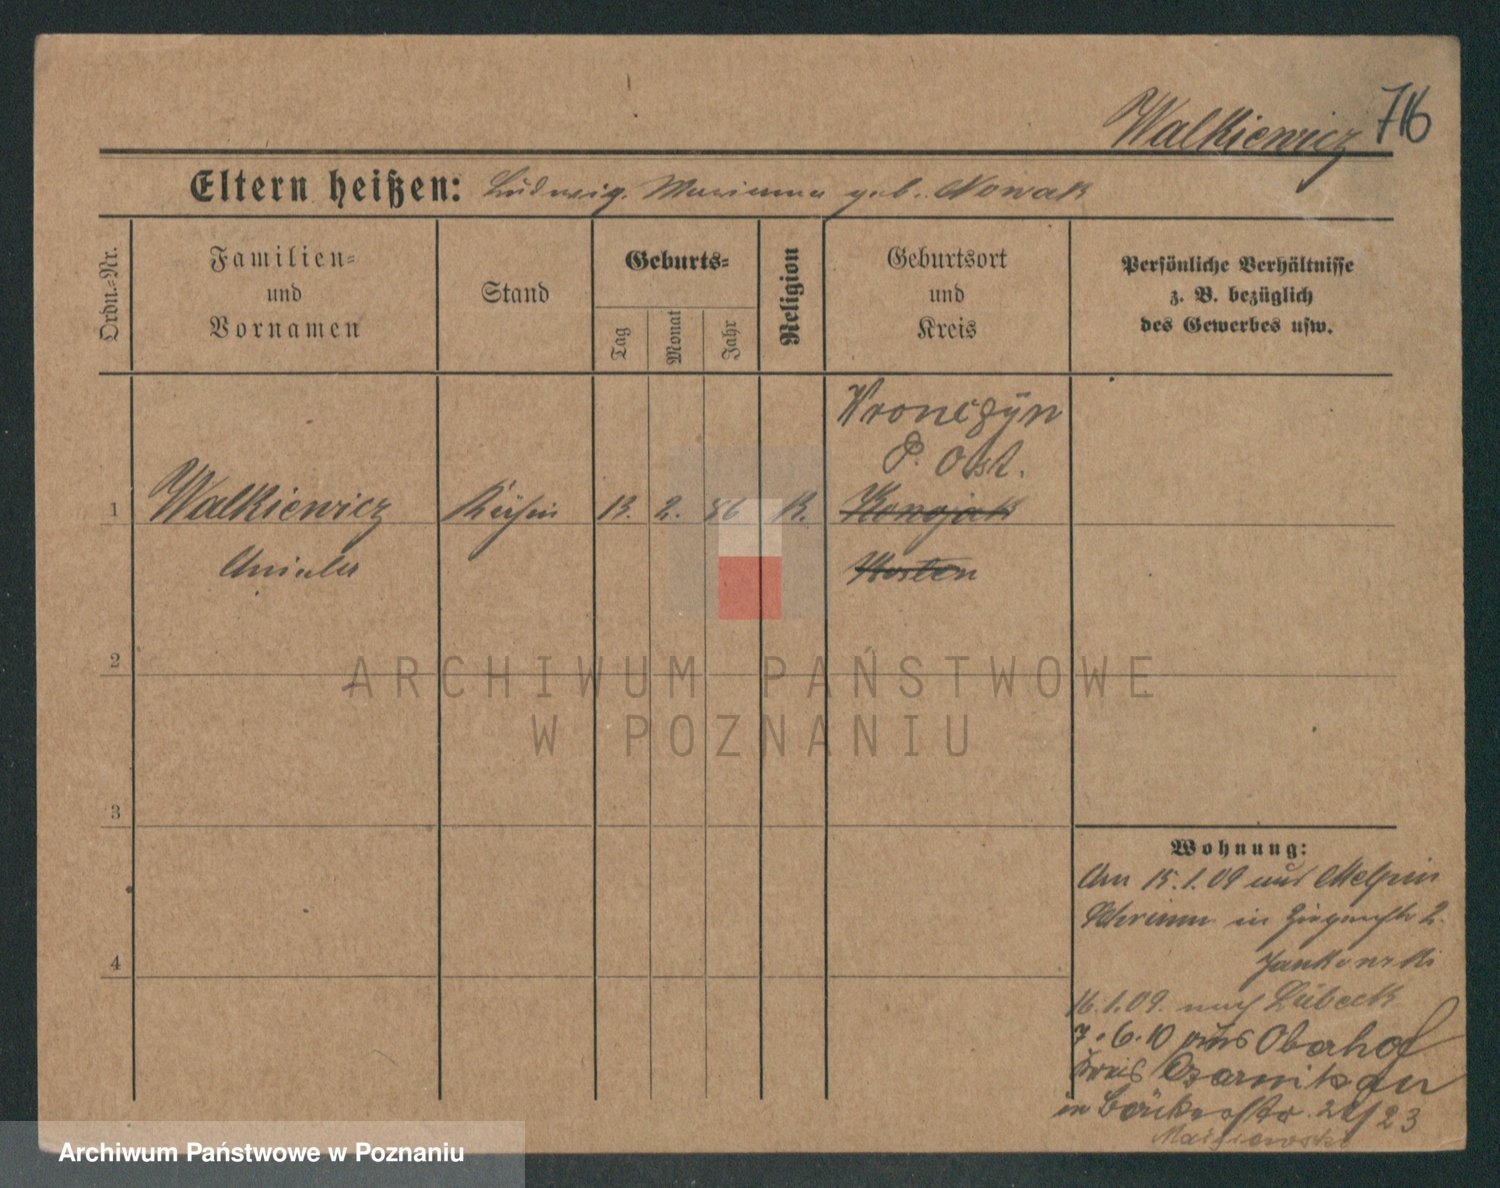 Walkiewicz 716
Eltern heißen: Ludwig, Marianna geb. Nowak
Ordn.-Nr.
Familien-
und
Vornamen
Stand
Geburts-
Tag
Monat
Jahr
Religion
Geburtsort
und
Kreis
Persönliche Verhältnisse
z. B. bezüglich
des Gewerbes usw.
Wronczyn
P. Ost.
1 Walkiewicz Köchin 13. 2. 86 K. Konojad
Aniela Kosten
2
3
4
Wohnung:
Am 15.1.09 aus Melpin
Schrimm in 2.
Jankowski
16.1.09. nach Lübeck
7.6.10 aus Oberhof
Kreis Czarnikau
in Bäckerstr. 22/23
ARCHIWUM PAŃSTWOWE
W POZNANIU
Archiwum Państwowe w Poznaniu